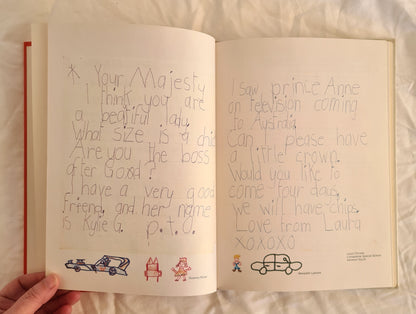 * Your Majesty
I think you are
a beatiful lady.
What size is a
Are you the boss
after Good?
I have a very good
friend and her name
is Kylie G. p.t.o.
I saw prince Anne
on television coming
to Australia.
Can I please have
a little crown.
Would you like to
come four days
we will have chips.
Love from Laura
xoxoxo